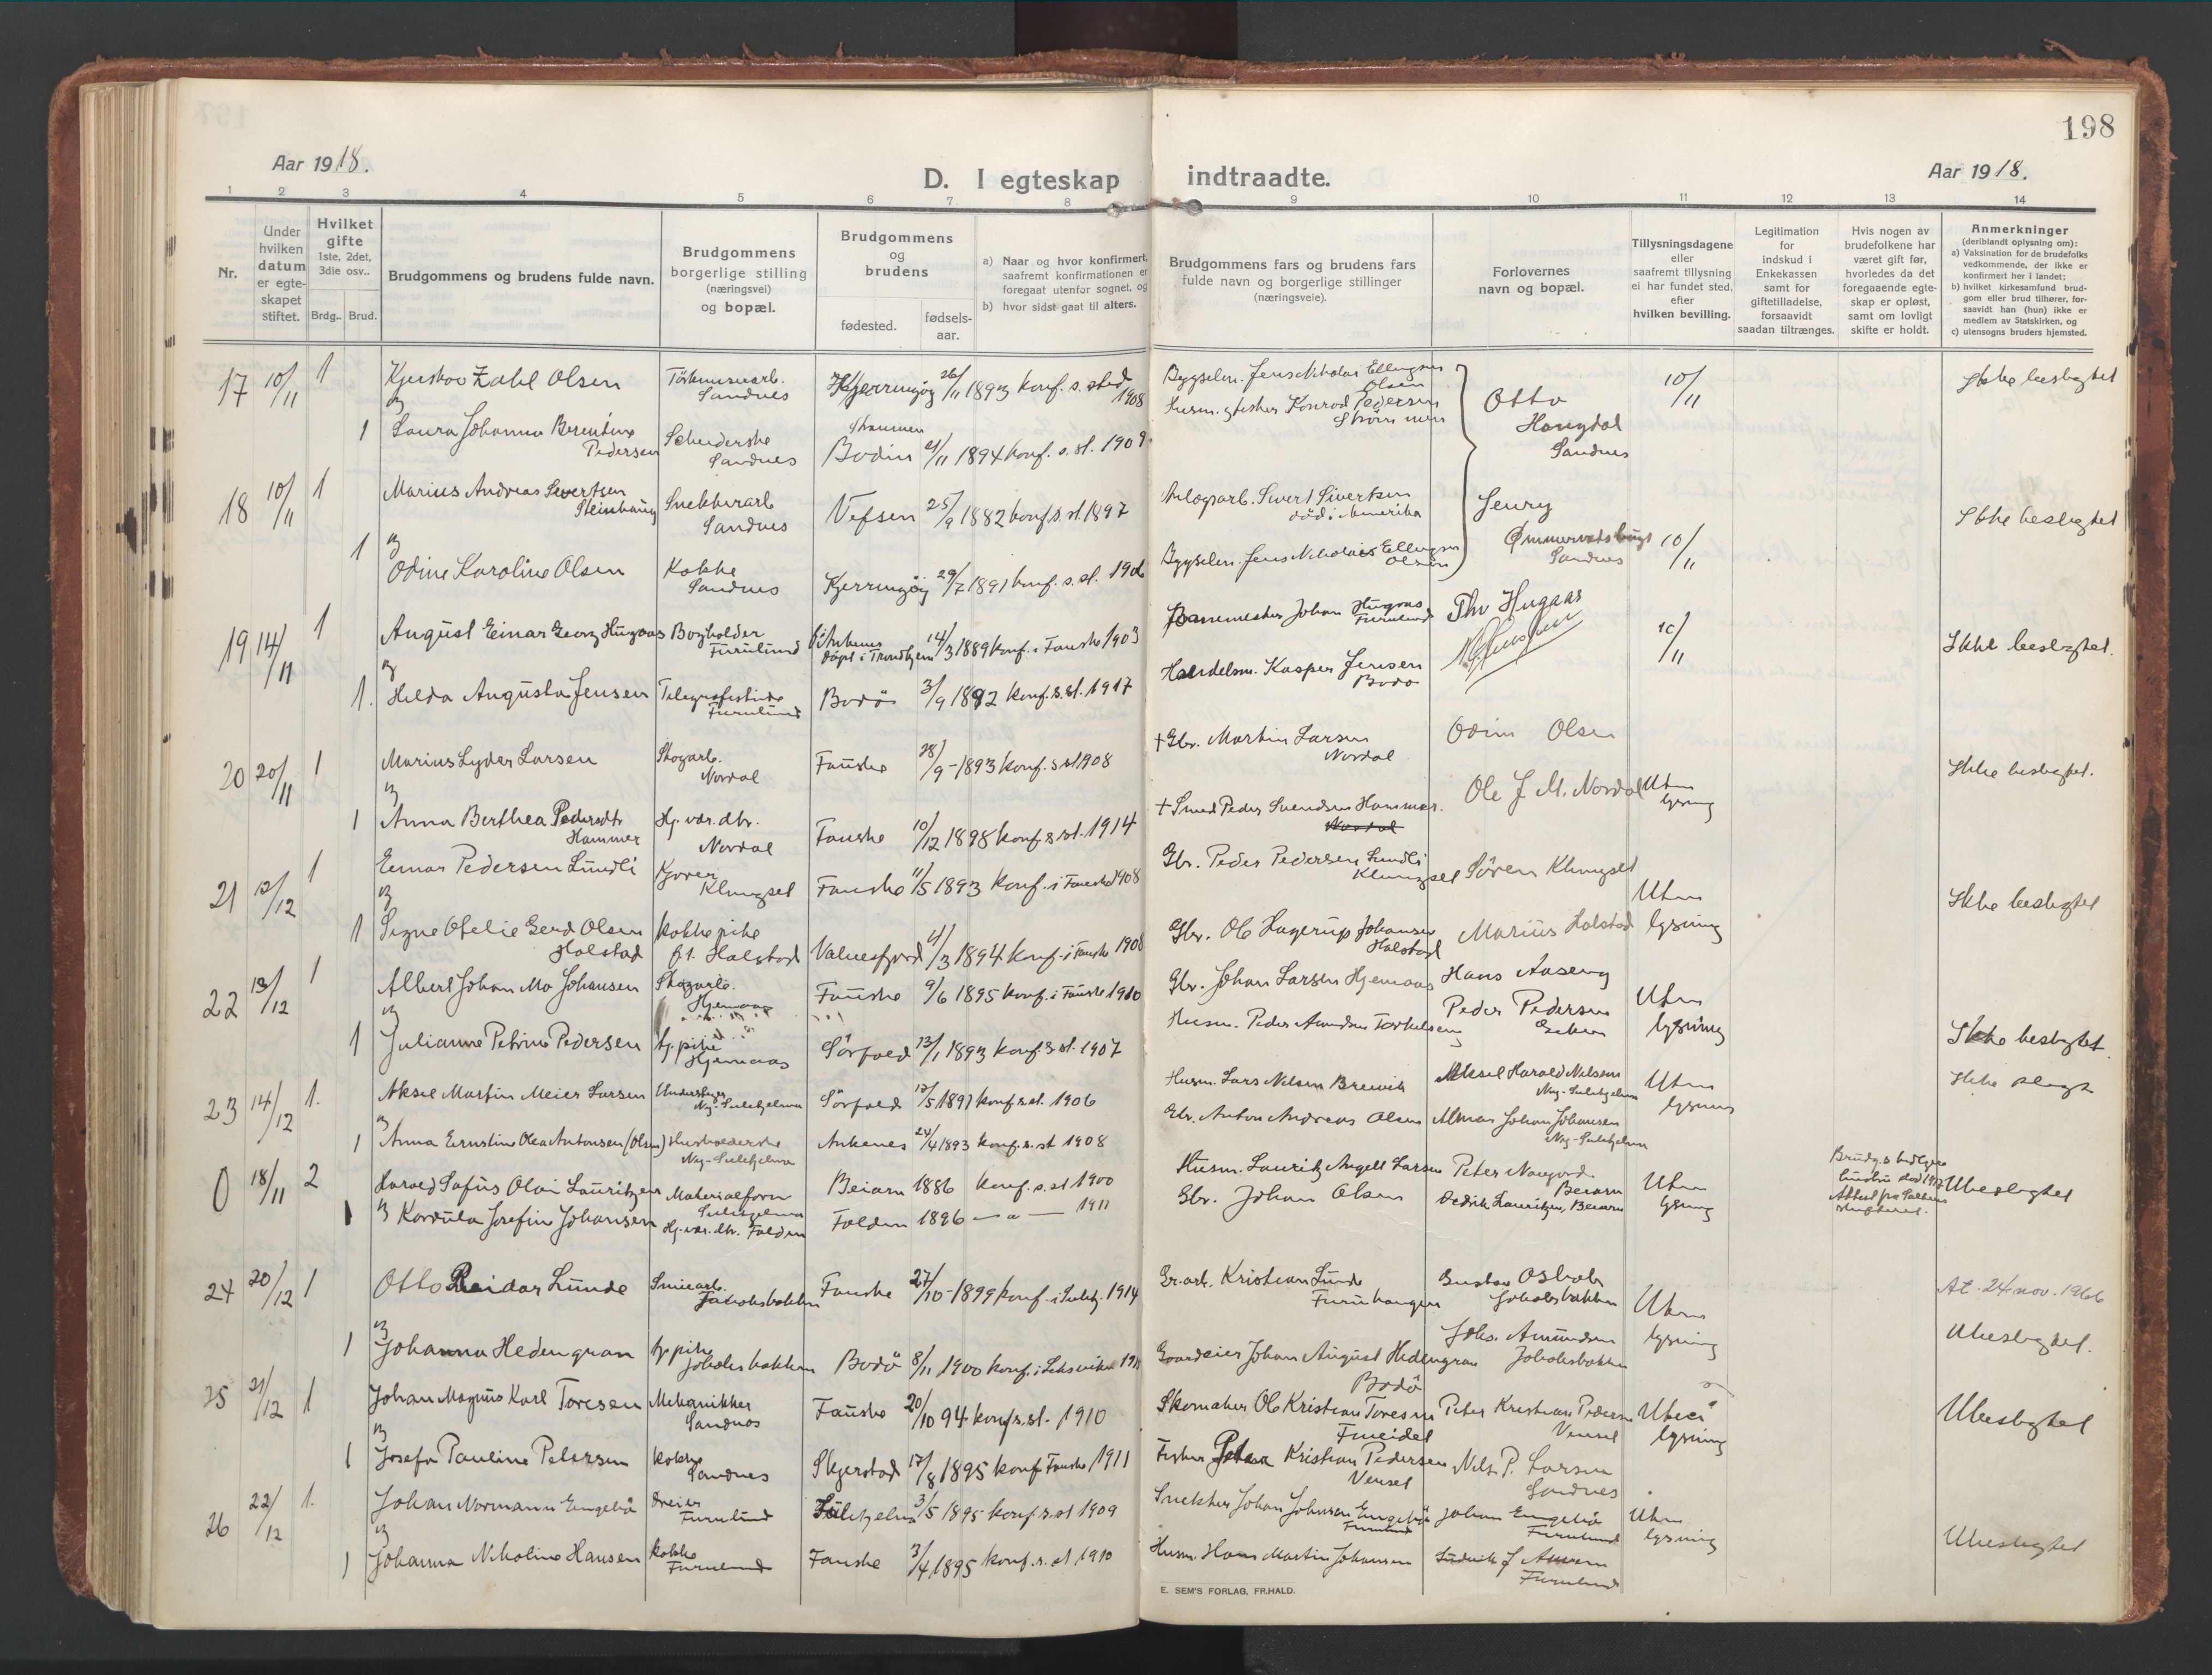 198
Aar 1918.
D. I egteskap indtraadte.
Aar 1918.
1 2 3 4 5 6 7 8 9 10 11 12 13 14
Nr.
Under hvilken datum er egteskapet stiftet.
Hvilket gifte 1ste, 2det, 3die osv..
Brdg.. Brud.
Brudgommens og brudens fulde navn.
Brudgommens borgerlige stilling (næringsvei) og bopæl.
Brudgommens og brudens
fødested.
fødselsaar.
a) Naar og hvor konfirmert, saafremt konfirmationen er foregaat utenfor sognet, og
b) hvor sidst gaat til alters.
Brudgommens fars og brudens fars fulde navn og borgerlige stillinger (næringsveie).
Forlovernes navn og bopæl.
Tillysningsdagene eller saafremt tillysning ei har fundet sted, efter hvilken bevilling.
Legitimation for indskud i Enkekassen samt for giftetilladelse, forsaavidt saadan tiltrænges.
Hvis nogen av brudefolkene har været gift før, hvorledes da det foregaaende egteskap er opløst, samt om lovligt skifte er holdt.
Anmerkninger
(deriblandt oplysning om):
a) Vaksination for de brudefolks vedkommende, der ikke er konfirmert her i landet;
b) hvilket kirkesamfund brudgom eller brud tilhører, forsaavidt han (hun) ikke er medlem av Statskirken, og
c) utensogns bruders hjemsted.
17 10/11 1 Zahl Olsen Sandnes Kjerringøy 26/11 1893 konf. s. sted 1908 Bygselm. Jens Nikolai Ellingsen Olsen Otto 10/11 Ikke beslegtet
1 Laura Johanna Berentine Pedersen Sandnes Bodin 21/11 1894 konf. s. st. 1909 Konrad Pedersen Sandnes
18 10/11 1 Marius Andreas Sivertsen Steinhaug Snekkerarb. Sandnes Vefsen 25/9 1882 konf. s. st. 1897 Sivert Sivertsen død i Amerika 10/11 Ikke beslegtet
1 Odine Karoline Olsen Kokke Sandnes Kjerringøy 29/7 1891 konf. s. st. 1906 Bygselm. Jens Nikolais Ellingsen Olsen Sandnes
19 14/11 1 August Einar Georg Hugaas Bogholder Furulund døpt i Trondhjem 14/3 1889 konf. i Fauske 1903 Johan Hugaas Furulund Thv Hugaas 10/11 Ikke beslegtet.
1. Helda Augusta Jensen Furulund Bodø 3/9 1892 konf. s. st. 1917 Handelsm. Kasper Jensen Bodø
20 20/11 1 Marius Lyder Larsen Skogarb. Nordal Fauske 28/9 - 1893 konf. s. st 1908 † Gbr. Martin Larsen Nordal Odin Olsen Ikke beslegtet.
1 Anna Berthea Pedersdtr Hammer Hj. vær. dtr. Nordal Fauske 10/12 1898 konf. s. st. 1914 † Smed Peder Svendsen Hammer. Ole J. M. Nordal Uten lysning
21 12/12 1 Einar Pedersen Lundli Kjører Klungset Fauske 11/5 1893 konf. i Fauske 1908 Gbr. Peder Pedersen Lundli Klungset Søren Klungset Uten lysning Ikke beslegtet
1 Signe Ofelie Gerd Olsen Holstad kokkepike Valnesfjord 4/3 1894 konf. i Fauske 1908 Gbr. Ole Hagerup Johansen Holstad Marius Holstad
22 13/12 1 Albert Johan Mo Johansen Skogarb. Hjemaas Fauske 9/6 1895 konf. i Fauske 1910 Gbr. Johan Larsen Hjemaas Hans Aaseng Uten lysning Ikke beslegtet.
1 Julianne Petrine Pedersen tj. pike Hjemaas Sørfold 13/1 1893 konf. s. st. 1907 Husm. Peder Amundsen Peder Pedersen
23 14/12 1. Aksel Martin Meier Larsen Ny-Sulitjelma Sørfold 1891 konf. s. st. 1906 Husm. Lars Nilsen Breivik Aksel Harald Nilsen Ny-Sulitjelma Uten lysning Ikke slegt
1 Anna Ernstine Olea Antonsen (Olsen) Husholderske Ny-Sulitjelma Ankenes 24/4 1893 konf. s. st 1908 Gbr. Anton Andreas Olsen Almar Johan Johansen Ny-Sulitjelma
0 18/11 2 Harald Sofus Olai Lauritzen Materialforv. Sulitjelma Beiarn 1886 konf. s. st 1900 Husm. Lauritz Angell Larsen Peter Beiarn Uten lysning Ubeslegtet
1 Kordula Josefine Johansen Hj. vær. dtr. Folden Folden 1896 — " — 1911 Gbr. Johan Olsen Dedrik Lauritzen, Beiarn
24 20/12 1 Otto Reidar Lunde Smiearb. Jakobsbakken Fauske 27/10 - 1899 konf. i Sulitj. 1914 Kristian Lunde Furuhaugen Gustav Jakobsbakken Uten lysning At. 24 nov. 1966
1 Johanna Hedengran tj. pike Jakobsbakken Bodø 8/11 1900 Gaardeier Johan August Hedengran Bodø Johs. Amundsen Jakobsbakken Ubeslegtet.
25 21/12 1 Johan Magnus Karl Toresen Mekanikker Sandnes Fauske 20/10 94 konf. s. st. 1910 Skomaker Ole Kristian Toresen Fineidet Peter Kristian Pedersen Venset lysning Ubeslegtet
1 Josefa Pauline Petersen kokke Sandnes Skjerstad 17/8 1895 konf Fauske 1911 Fisker Kristian Pedersen Venset Nils P. Larsen Sandnes
26 22/12 1. Johan Normann Engebø Dreier Furulund Sulitjelma 3/5 1895 konf. s. st 1909 Snekker Johan Johnsen Engebø Furulund Johan Engebø Furulund Uten lysning Ubeslegtet
1 Johanna Nikoline Hansen kokke Furulund Fauske 3/4 1895 konf. s. st 1910 Husm. Hans Martin Johansen Furulund
E. SEM'S FORLAG, FR.HALD.